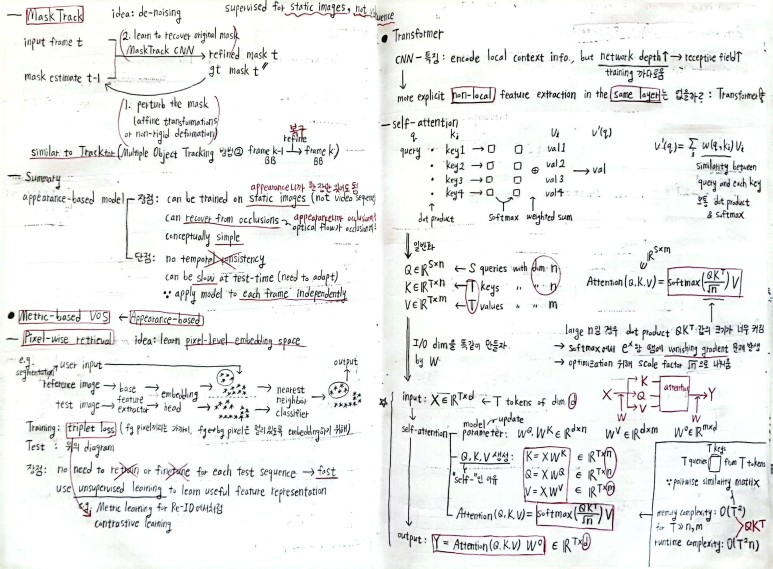 supervised for static images, not sequence
— MaskTrack idea: de-noising
2. learn to recover original mask
input frame t
MaskTrack CNN → refined mask t
gt mask t
mask estimate t-1
1. perturb the mask
(affine transformations
or non-rigid deformation)
복구
refine
similar to Tracktor (Multiple Object Tracking 방법② frame k-1 → frame k)
BB BB
— Summary
appearance니까 한 장만 있어도 됨
appearance-based model
장점: can be trained on static images (not video sequence)
can recover from occlusions
optical flow가 occlusion에
conceptually simple
단점: no temporal consistency
can be slow at test-time (need to adapt)
∵ apply model to each frame independently
● Metric-based VOS ← Appearance-based
— Pixel-wise retrieval idea: learn pixel-level embedding space
e.g. segmentation
user input
output
reference image → base feature extractor → embedding head → nearest neighbor classifier
test image
Training: triplet loss
Test: 위의 diagram
장점: no need to retrain or finetune for each test sequence → fast
use unsupervised learning to learn useful feature representation
e.g. Metric learning for Re-ID에서처럼
contrastive learning
● Transformer
CNN - 특징: encode local context info., but network depth↑ → receptive field↑
training 까다로움
more explicit non-local feature extraction in the same layer는 없을까?: Transformer
— self-attention
q ki Vi v'(q)
query · key1 → val1
· key2 → val2
· key3 → val3
· key4 → val4
⊕ → val
dot product softmax weighted sum
v'(q) = Σ w(q,ki) Vi
similarity between
query and each key
보통 dot product
& softmax
일반화
Q∈ℝ^S×n ← S queries with dim n
K∈ℝ^T×n ← T keys " " n
V∈ℝ^T×m ← T values " " m
ℝ^S×m
Attention(Q,K,V) = softmax(QKᵀ/√n)V
large n일 경우 dot product QKᵀ 값의 크기가 너무 커짐
→ softmax에서 e^x라 땜에 vanishing gradient 문제 발생
→ optimization 위해 scale factor √n으로 나눠줌
I/O dim을 똑같이 만들자
by W
X → K Q V → attention → Y
W W
☆ input: X∈ℝ^T×d ← T tokens of dim. d
model update
self-attention
parameter: W^Q, W^K∈ℝ^d×n W^V∈ℝ^d×m W^O∈ℝ^m×d
Q, K, V 생성:
"self-"인 이유
K = XW^K ∈ℝ^T×n
Q = XW^Q ∈ℝ^T×n
V = XW^V ∈ℝ^T×m
Attention(Q,K,V) = softmax(QKᵀ/√n)V
output: Y = Attention(Q,K,V) W^O ∈ℝ^T×d
T keys
T queries from T tokens
∵ pairwise similarity matrix
memory complexity: O(T²)
for T ≫ n,m
runtime complexity: O(T²n)
QKᵀ